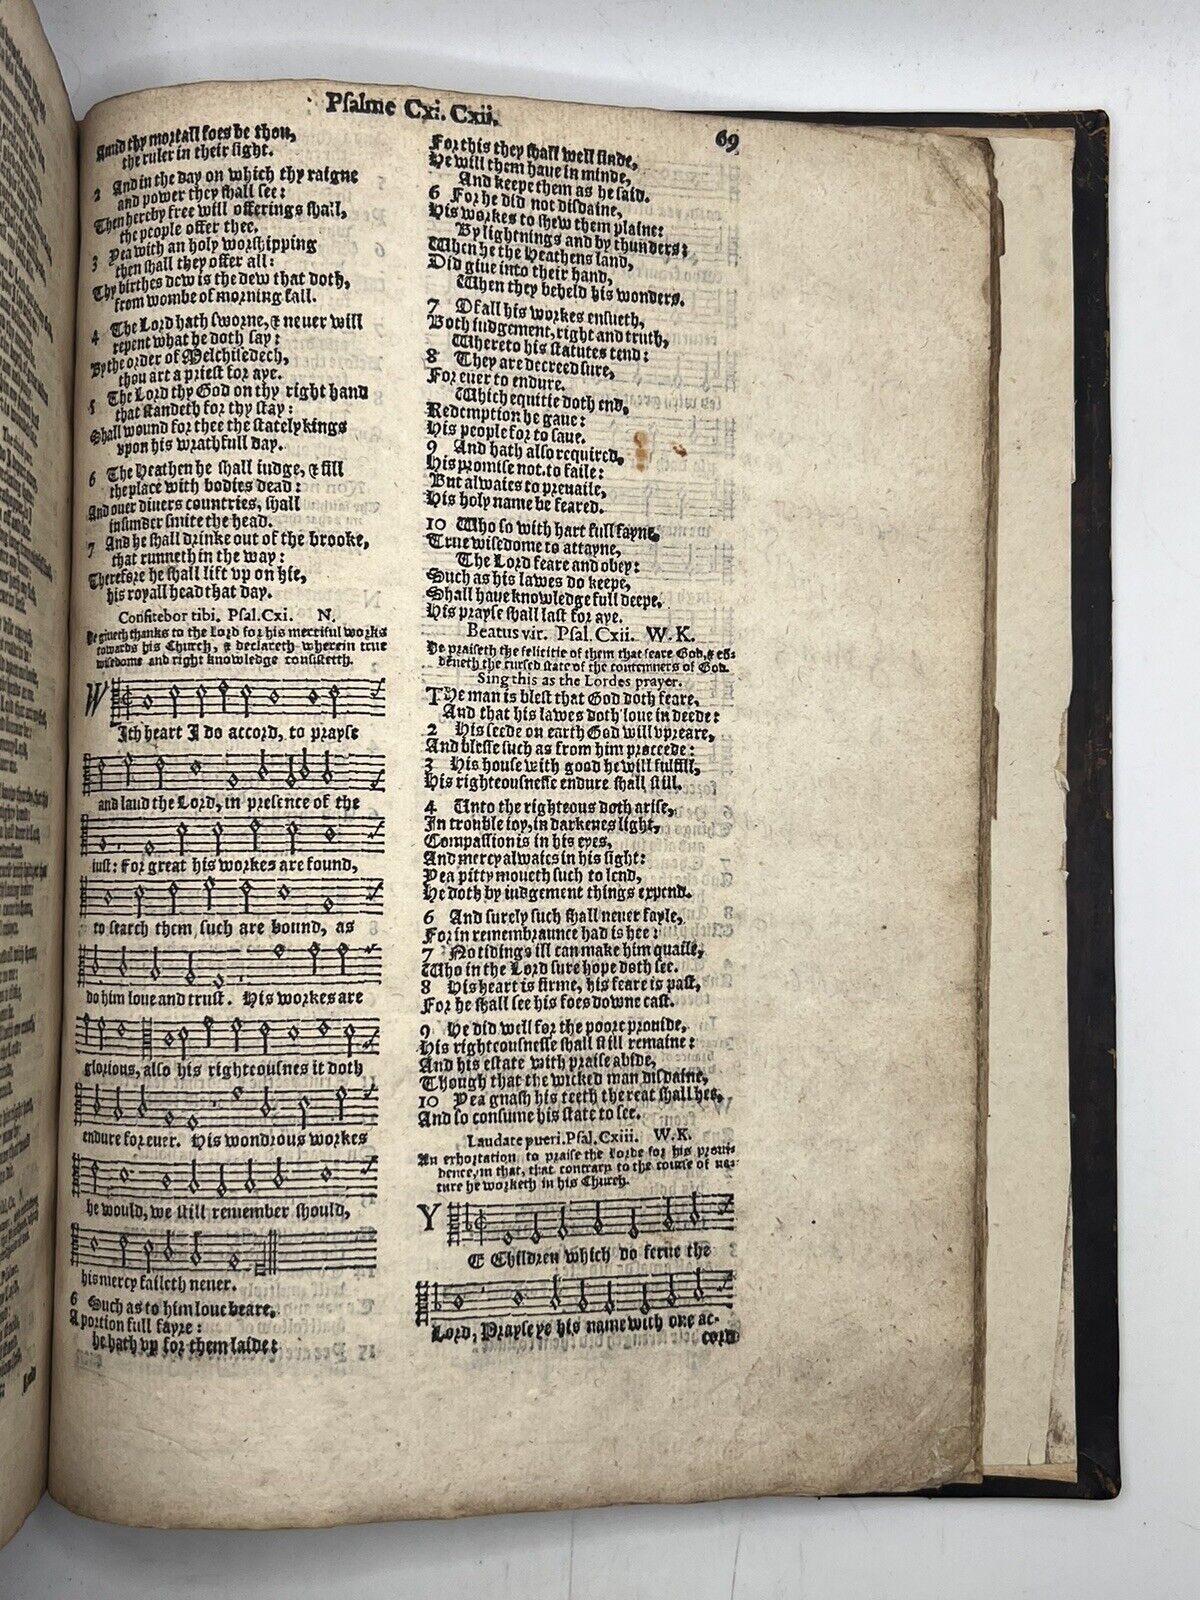 Psalme Cxi. Cxii.
69
Amid thy mortall foes be thou,
the ruler in their sight.
2 And in the day on which thy raigne
and power they shall see:
Then hereby free will offerings shall,
the people offer thee.
3 Yea with an holy worshipping
then shall they offer all:
Thy birthes dew is the dew that doth,
from wombe of morning fall.
4 The Lord hath sworne, & neuer will
repent what he doth say:
By the order of Melchisedech,
thou art a priest for aye.
5 The Lord thy God on thy right hand
that standeth for thy stay:
Shall wound for thee the stately kings
vpon his wrathfull day.
6 The Heathen he shall iudge, & fill
the place with bodies dead:
And ouer diuers countries, shall
in sunder smite the head.
7 And he shall drinke out of the brooke,
that runneth in the way:
Therefore he shall lift vp on hie,
his royall head that day.
Confitebor tibi. Psal. Cxi. N.
He giueth thanks to the Lord for his merciful works
towards his Church, & declareth wherein true
wisedome and right knowledge consisteth.
WIth heart I do accord, to prayse
and laud the Lord, in presence of the
iust: For great his workes are found,
to search them such are bound, as
do him loue and trust. His workes are
glorious, also his righteousnes it doth
endure for euer. His wondrous workes
he would, we still remember should,
his mercy faileth neuer.
6 Such as to him loue beare,
A portion full fayre:
he hath vp for them laide:
For this they shall well finde,
He will them haue in minde,
And keepe them as he said.
6 For he did not disdaine,
His workes to shew them plaine:
By lightnings and by thunders:
When he the Heathens land,
Did giue into their hand,
When they beheld his wonders.
7 Of all his workes ensueth,
Both iudgement, right and truth,
Whereto his statutes tend:
8 They are decreed sure,
For euer to endure.
Which equitie doth end,
Redemption he gaue:
His people for to saue.
9 And hath also required,
His promise not to faile:
But alwaies to preuaile,
His holy name be feared.
10 Who so with hart full fayne,
True wisedome to attayne,
The Lord feare and obey:
Such as his lawes do keepe,
Shall haue knowledge full deepe,
His prayse shall last for aye.
Beatus vir. Psal. Cxii. W. K.
He praiseth the felicitie of them that feare God, & co-
deneth the cursed state of the contemners of God.
Sing this as the Lordes prayer.
THe man is blest that God doth feare,
And that his lawes doth loue in deede:
2 His seede on earth God will vpreare,
And blesse such as from him proceede:
3 His house with good he will fulfill,
His righteousnesse endure shall still.
4 Unto the righteous doth arise,
In trouble ioy, in darkenes light,
Compassion is in his eyes,
And mercy alwaies in his sight:
Yea pitty moueth such to lend,
He doth by iudgement things expend.
6 And surely such shall neuer fayle,
For in remembraunce had is hee:
7 No tidings ill can make him quaile,
Who in the Lord sure hope doth see.
8 His heart is firme, his feare is past,
For he shall see his foes downe cast.
9 He did well for the poore prouide,
His righteousnesse shall still remaine:
And his estate with praise abide,
Though that the wicked man disdaine,
10 Yea gnash his teeth thereat shall hee,
And so consume his state to see.
Laudate pueri. Psal. Cxiii. W. K.
An exhortation to praise the Lorde for his proui-
dence, in that, that contrary to the course of na-
ture he worketh in his Church.
YE Children which do serue the
Lord, Prayse ye his name with one ac-
cord